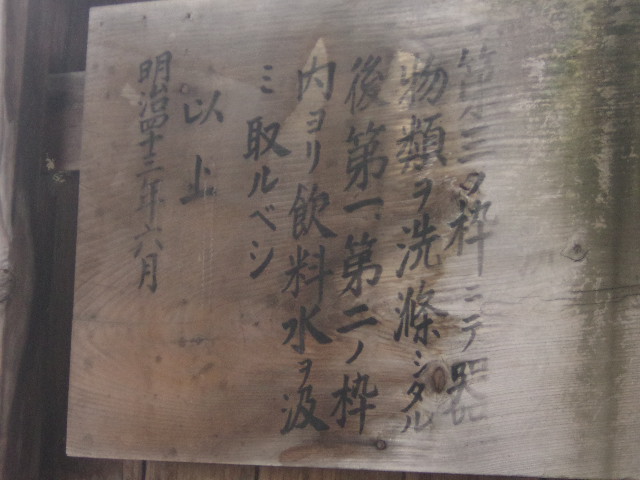 第三ノ枠ニテ器
物類ヲ洗滌シタル
後第一、第二ノ枠
内ヨリ飲料水ヲ汲
ミ取ルベシ
以上
明治四十三年六月